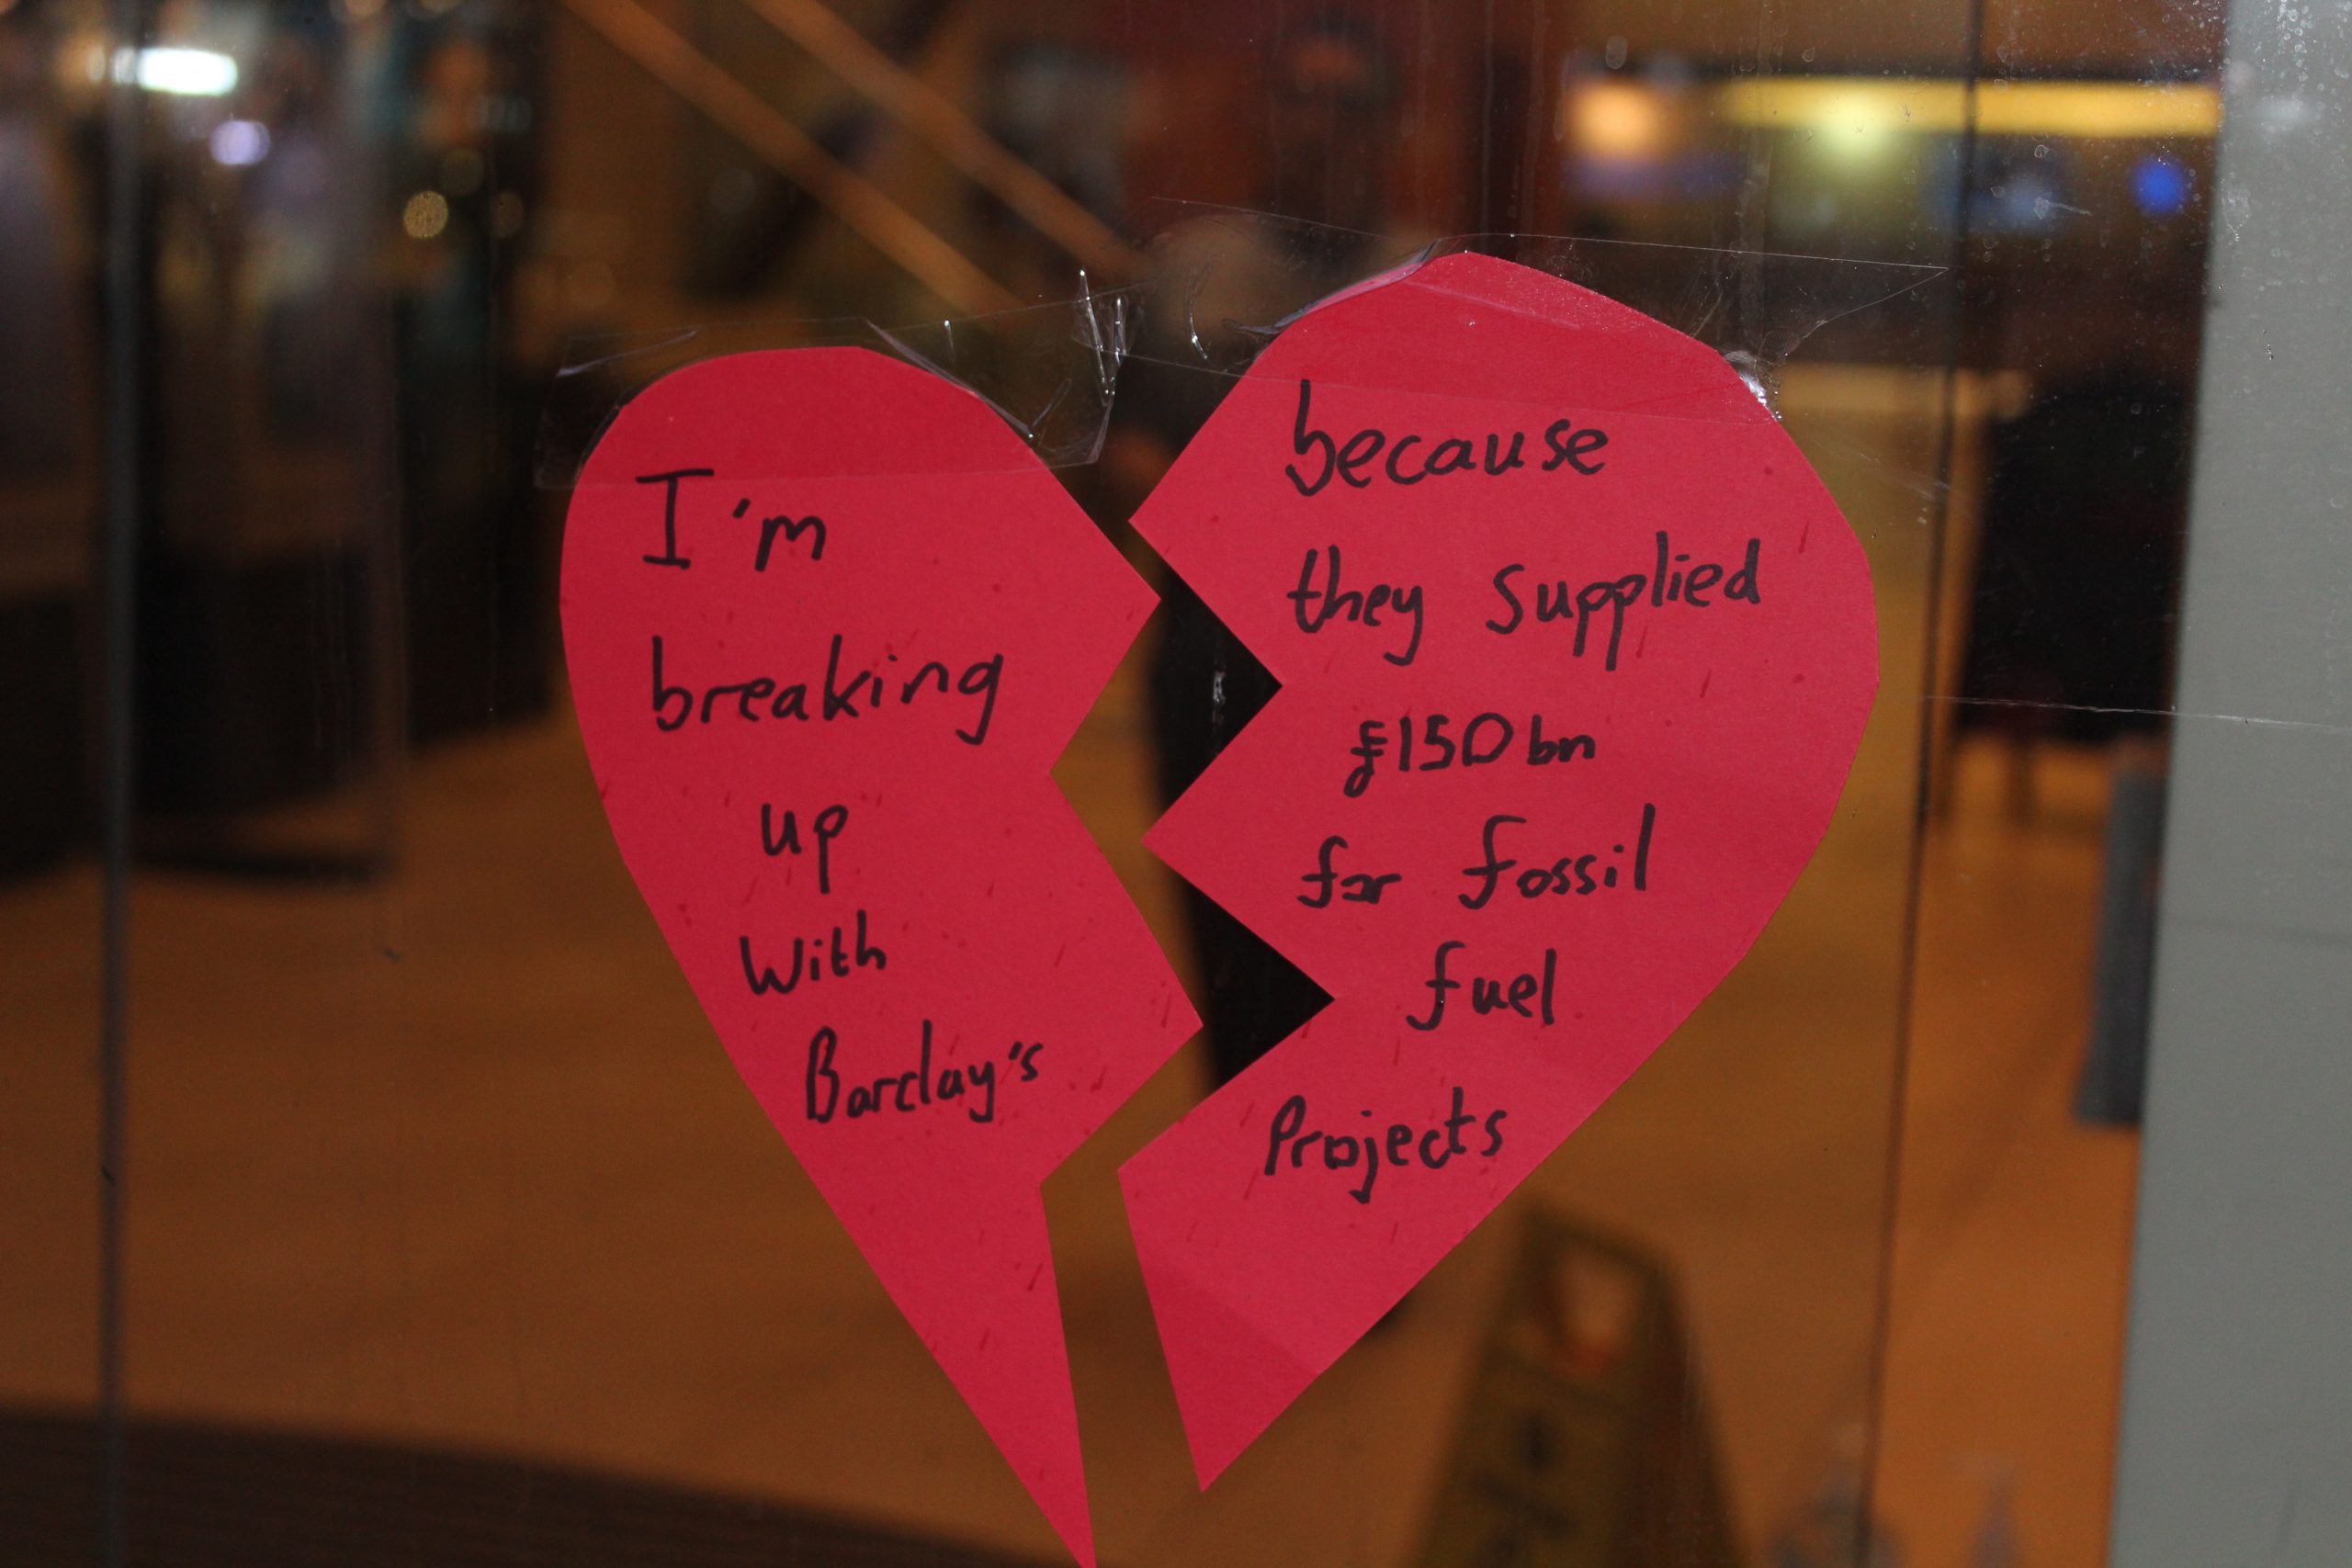 I'm
breaking
up
With
Barclay's
because
they supplied
£150bn
for fossil
fuel
Projects